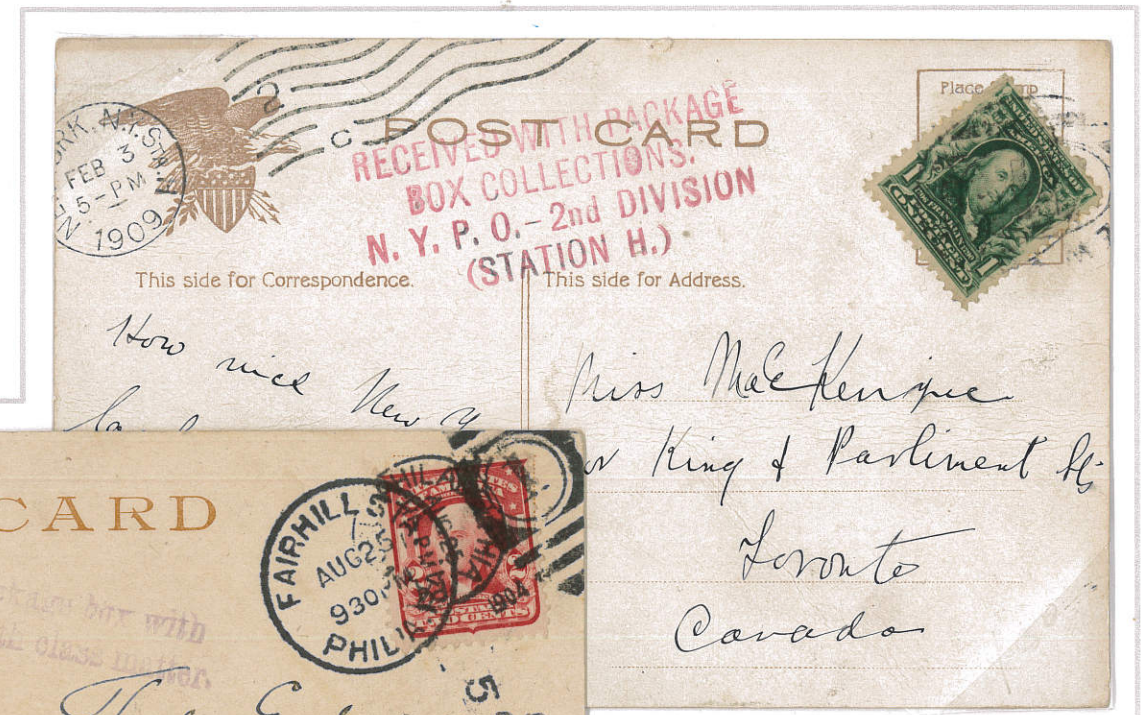 POST CARD
Place
NEW YORK, N.Y. STA. A.
FEB 3
5 - PM
1909
RECEIVED WITH PACKAGE
BOX COLLECTIONS.
N. Y. P. O. - 2nd DIVISION
(STATION H.)
1
1
This side for Correspondence.
This side for Address.
How nice New Y
Miss MacKenzie
King & Parliment Sts
Toronto
Canada
CARD
FAIRHILL STA
AUG 25
930
PHIL'A
1904
box with
class matter.
The
5